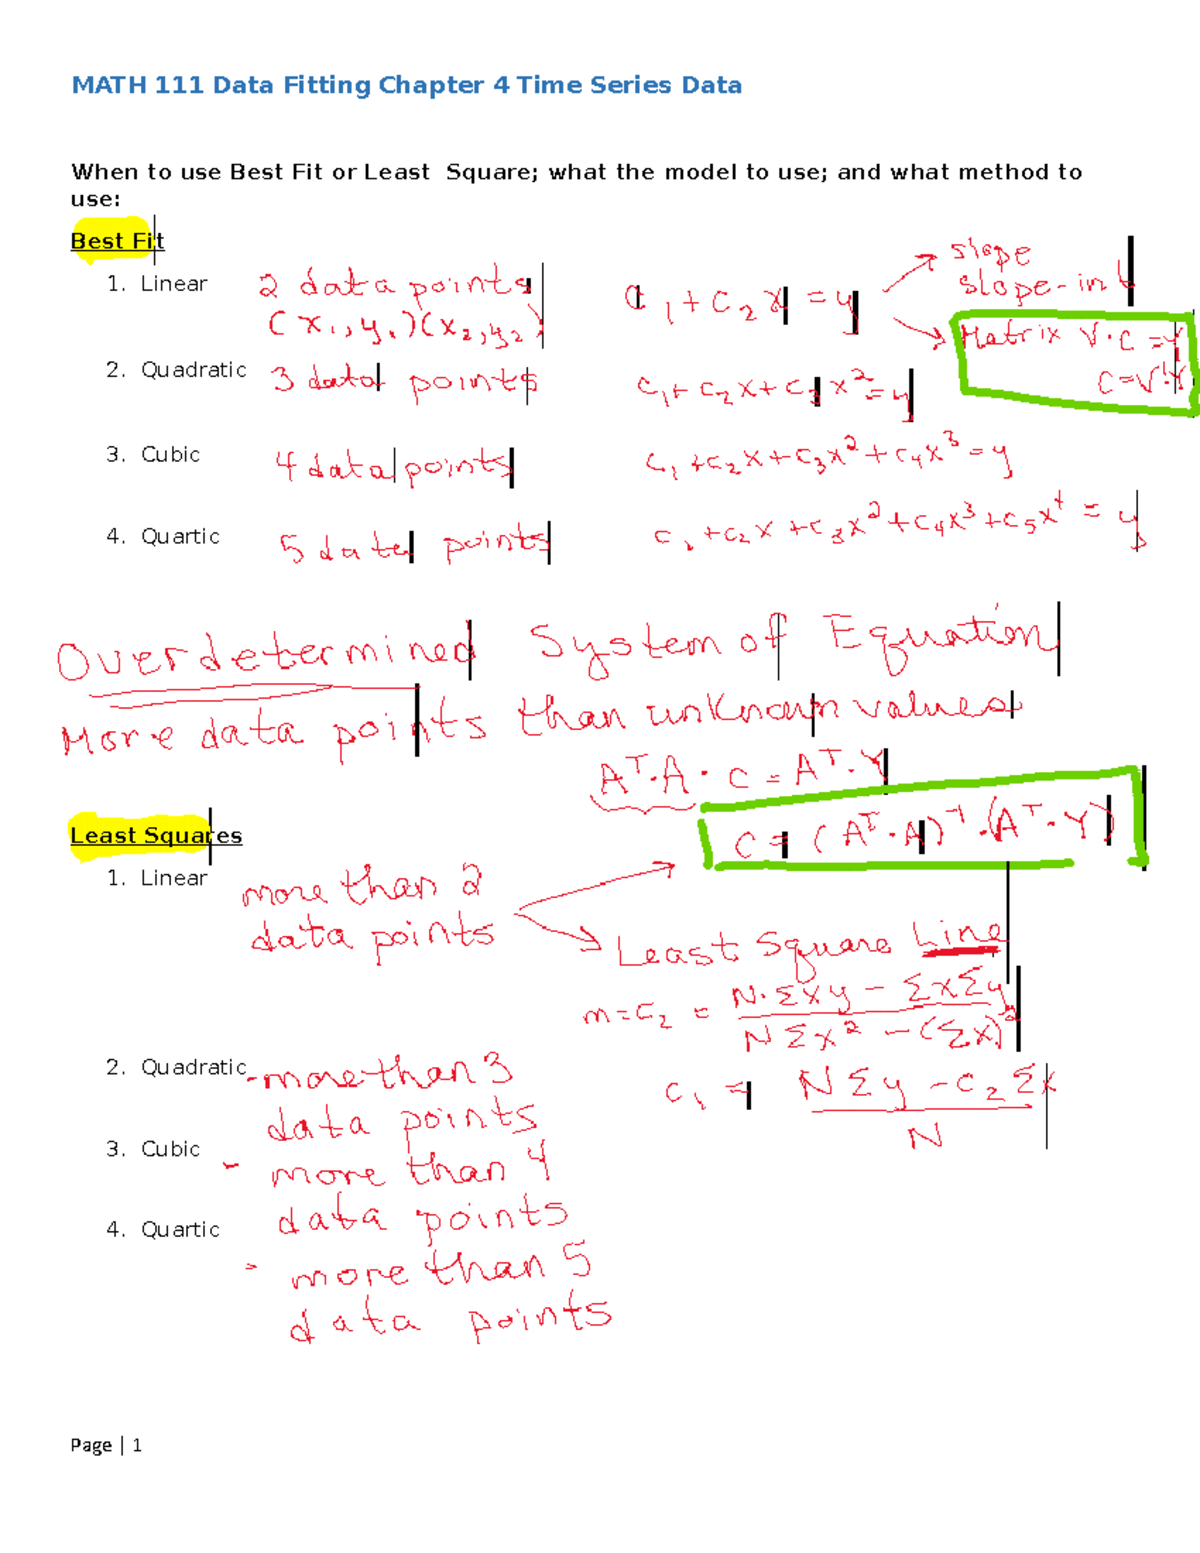 MATH 111 Data Fitting Chapter 4 Time Series Data
When to use Best Fit or Least Square; what the model to use; and what method to
use:
Best Fit
1. Linear 2 data points C₁ + C₂ X = y slope
slope-int
(x₁, y₁)(x₂, y₂) Matrix V·C = Y
C = V⁻¹Y
2. Quadratic 3 data points C₁ + C₂X + C₃X² = y
3. Cubic 4 data points C₁ + C₂X + C₃X² + C₄X³ = y
4. Quartic 5 data points C₁ + C₂X + C₃X² + C₄X³ + C₅X⁴ = y
Overdetermined System of Equation
More data points than unknown values
Aᵀ·A · C = Aᵀ·Y
C = (Aᵀ·A)⁻¹·(Aᵀ·Y)
Least Squares
1. Linear more than 2
data points
Least Square Line
m = C₂ = N·Σxy - ΣxΣy
NΣx² - (Σx)²
C₁ = NΣy - C₂Σx
N
2. Quadratic - more than 3
data points
3. Cubic - more than 4
data points
4. Quartic - more than 5
data points
Page | 1